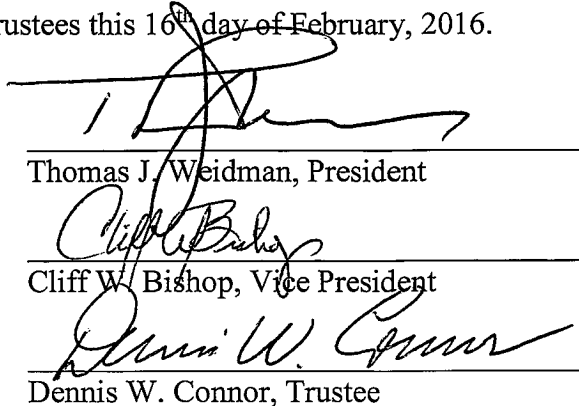 rustees this 16th day of February, 2016.
Thomas J. Weidman, President
Cliff W Bishop
Cliff W. Bishop, Vice President
Dennis W. Connor
Dennis W. Connor, Trustee